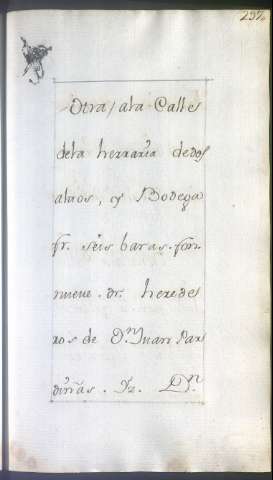 297
Otra, ala Calle
dela herraria dedos
altos, y Bodega
fr. seis baras. fon.
nueve. dr. herede
ros de D.n Juan Par
diñas. Yz. D.n